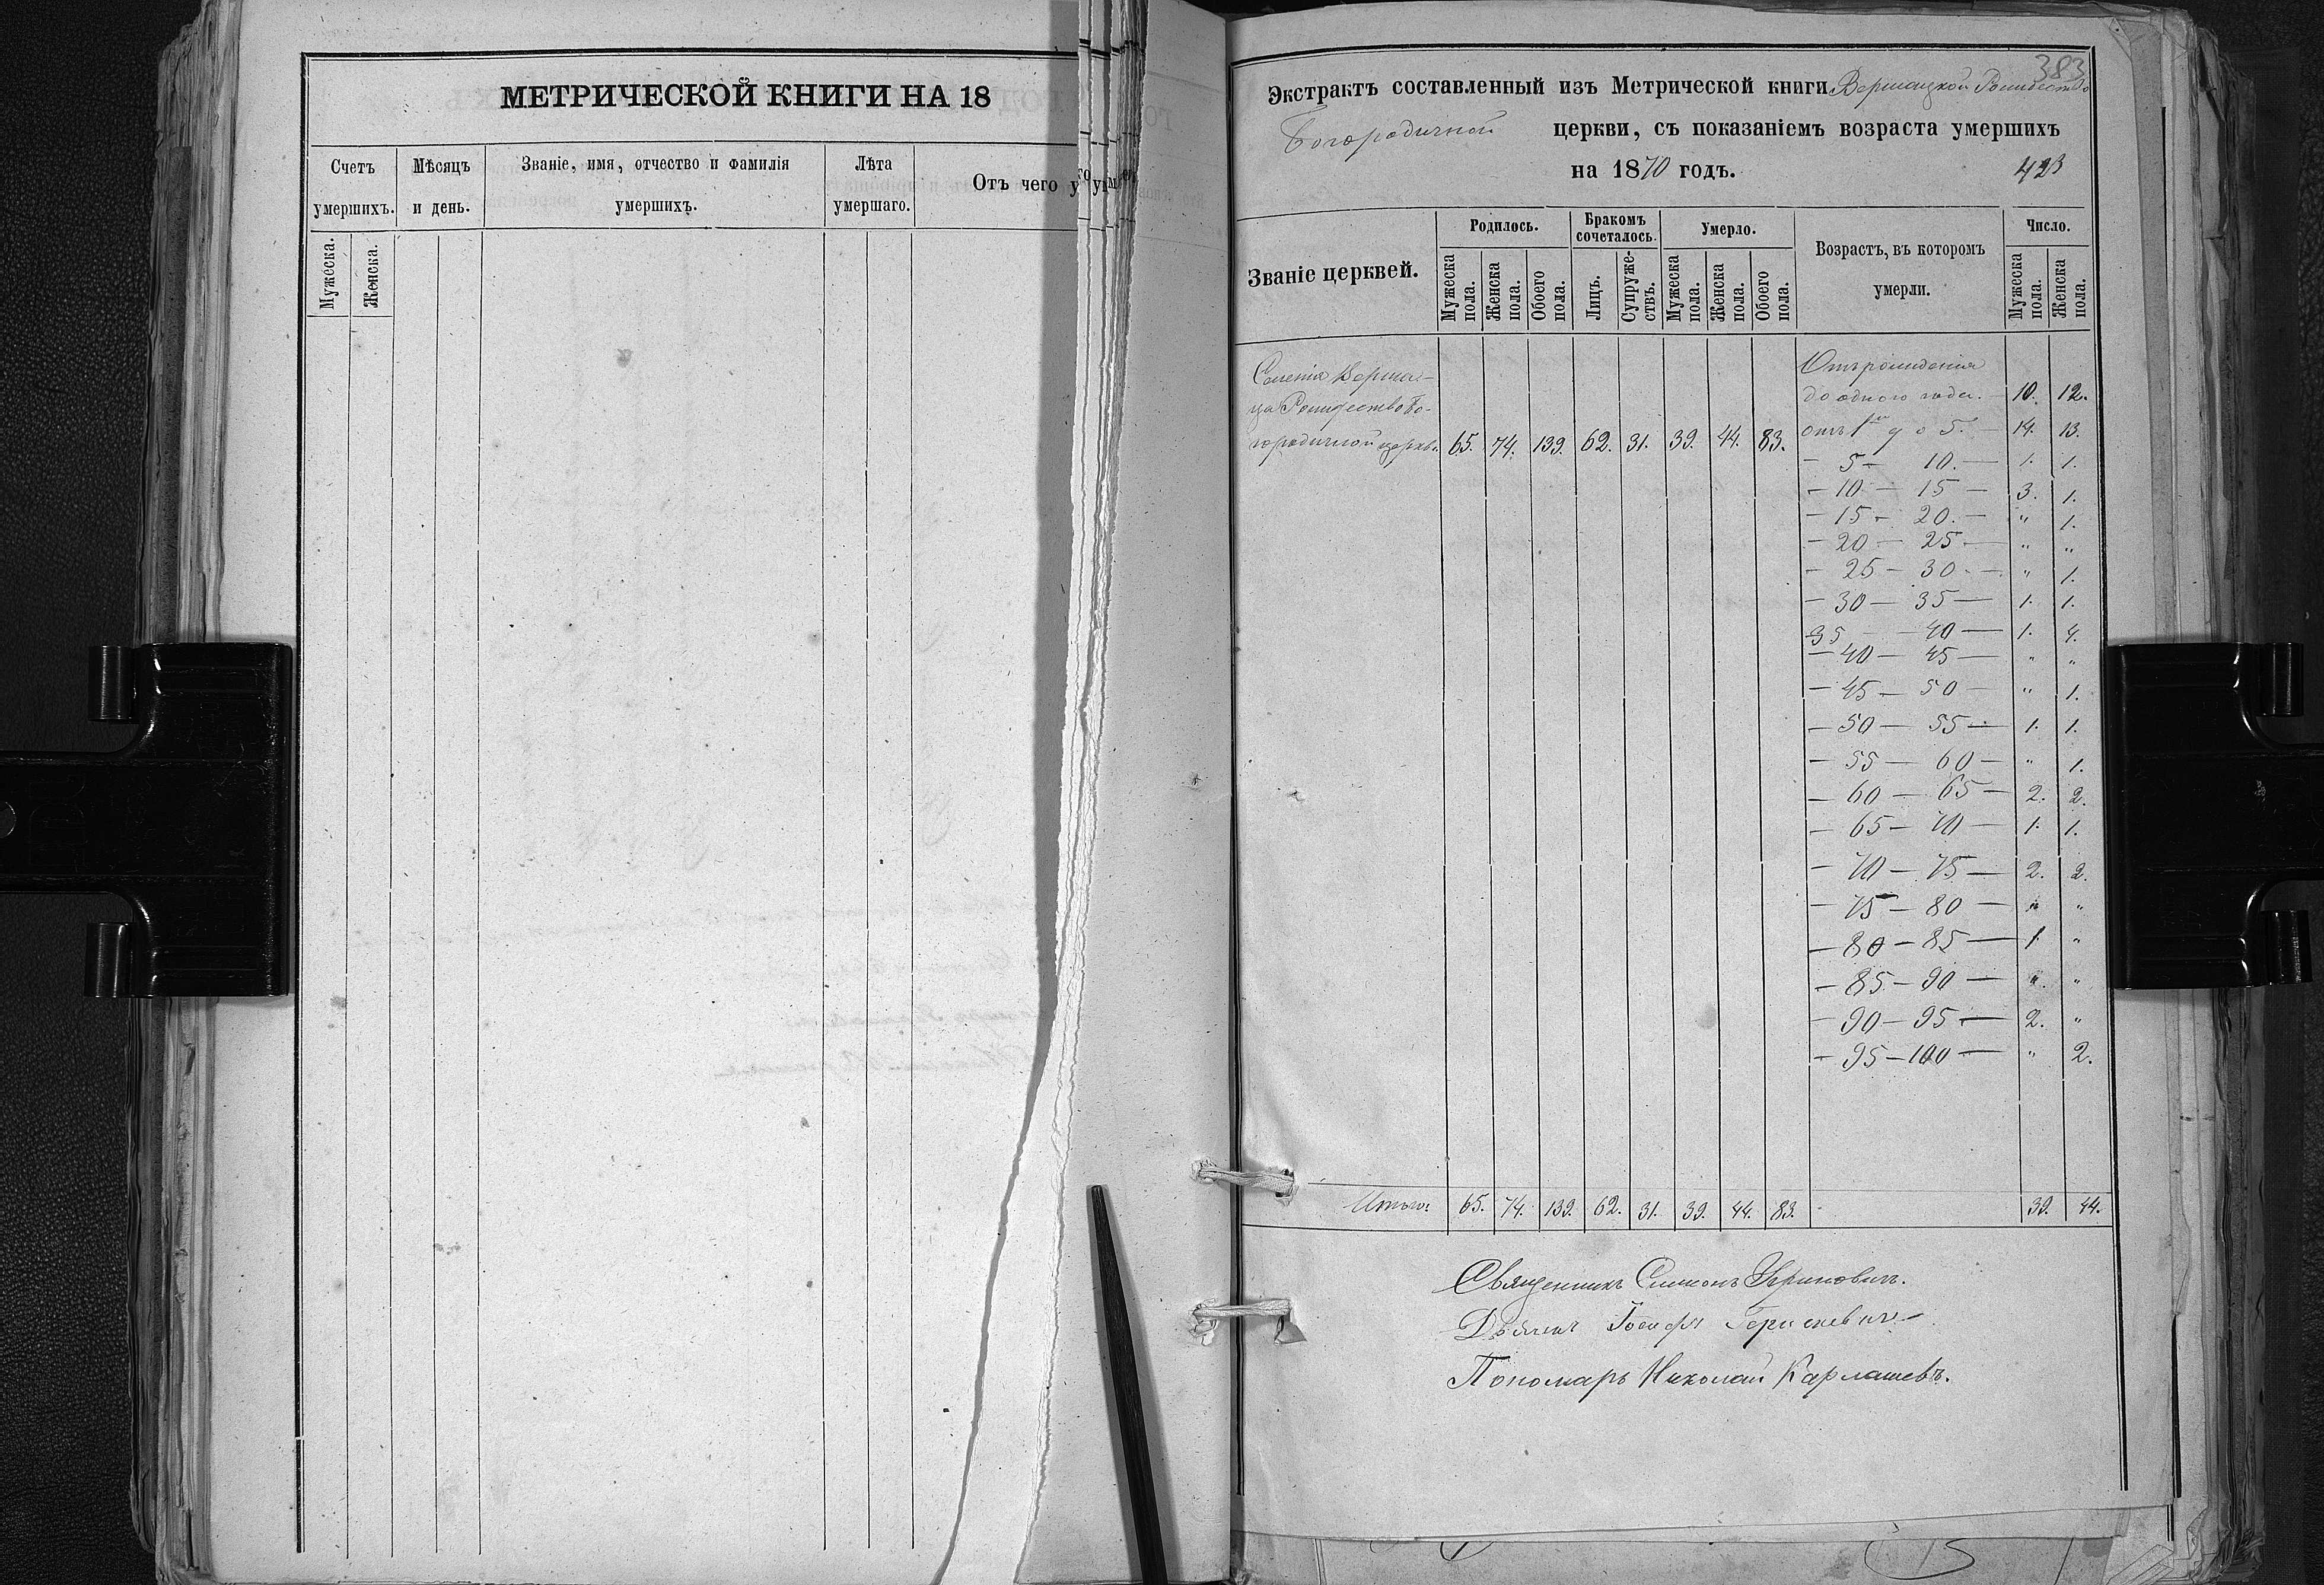 МЕТРИЧЕСКОЙ КНИГИ НА 18
Счетъ умершихъ. Мѣсяцъ и день. Званіе, имя, отчество и фамилія умершихъ. Лѣта умершаго. Отъ чего
Мужеска. Женска.
383
Экстрактъ составленный изъ Метрической книги Вершацкой Рождество
Богородичной церкви, съ показаніемъ возраста умершихъ
на 1870 годъ. 423
Званіе церквей. Родилось. Бракомъ сочеталось. Умерло. Возрастъ, въ которомъ умерли. Число.
Мужеска пола. Женска пола. Обоего пола. Лицъ. Супружествъ. Мужеска пола. Женска пола. Обоего пола. Мужеска пола. Женска пола.
Селенія Верша-
ца Рождество Бо-
городичной церкви 65. 74. 139. 62. 31. 39. 44. 83.
Отъ рожденія
до одного года. 10. 12.
отъ 1го до 5. — 14. 13.
— 5 — 10. — 1. 1.
— 10 — 15 — 3. 1.
— 15 — 20. — " 1.
— 20 — 25 — " "
— 25 — 30 — " 1.
— 30 — 35 — 1. 1.
35 — 40 — 1. 4.
— 40 — 45 — " "
— 45 — 50 — " 1.
— 50 — 55 — 1. 1.
— 55 — 60 — " 1.
— 60 — 65 — 2. 2.
— 65 — 70 — 1. 1.
— 70 — 75 — 2. 2.
— 75 — 80 — " "
— 80 — 85 — 1. "
— 85 — 90 — " "
— 90 — 95 — 2. "
— 95 — 100 — " 2.
Итого: 65. 74. 139. 62. 31. 39. 44. 83. 39. 44.
Священникъ Симеонъ
Дьячекъ Іосифъ
Пономарь Николай Карлашевъ.